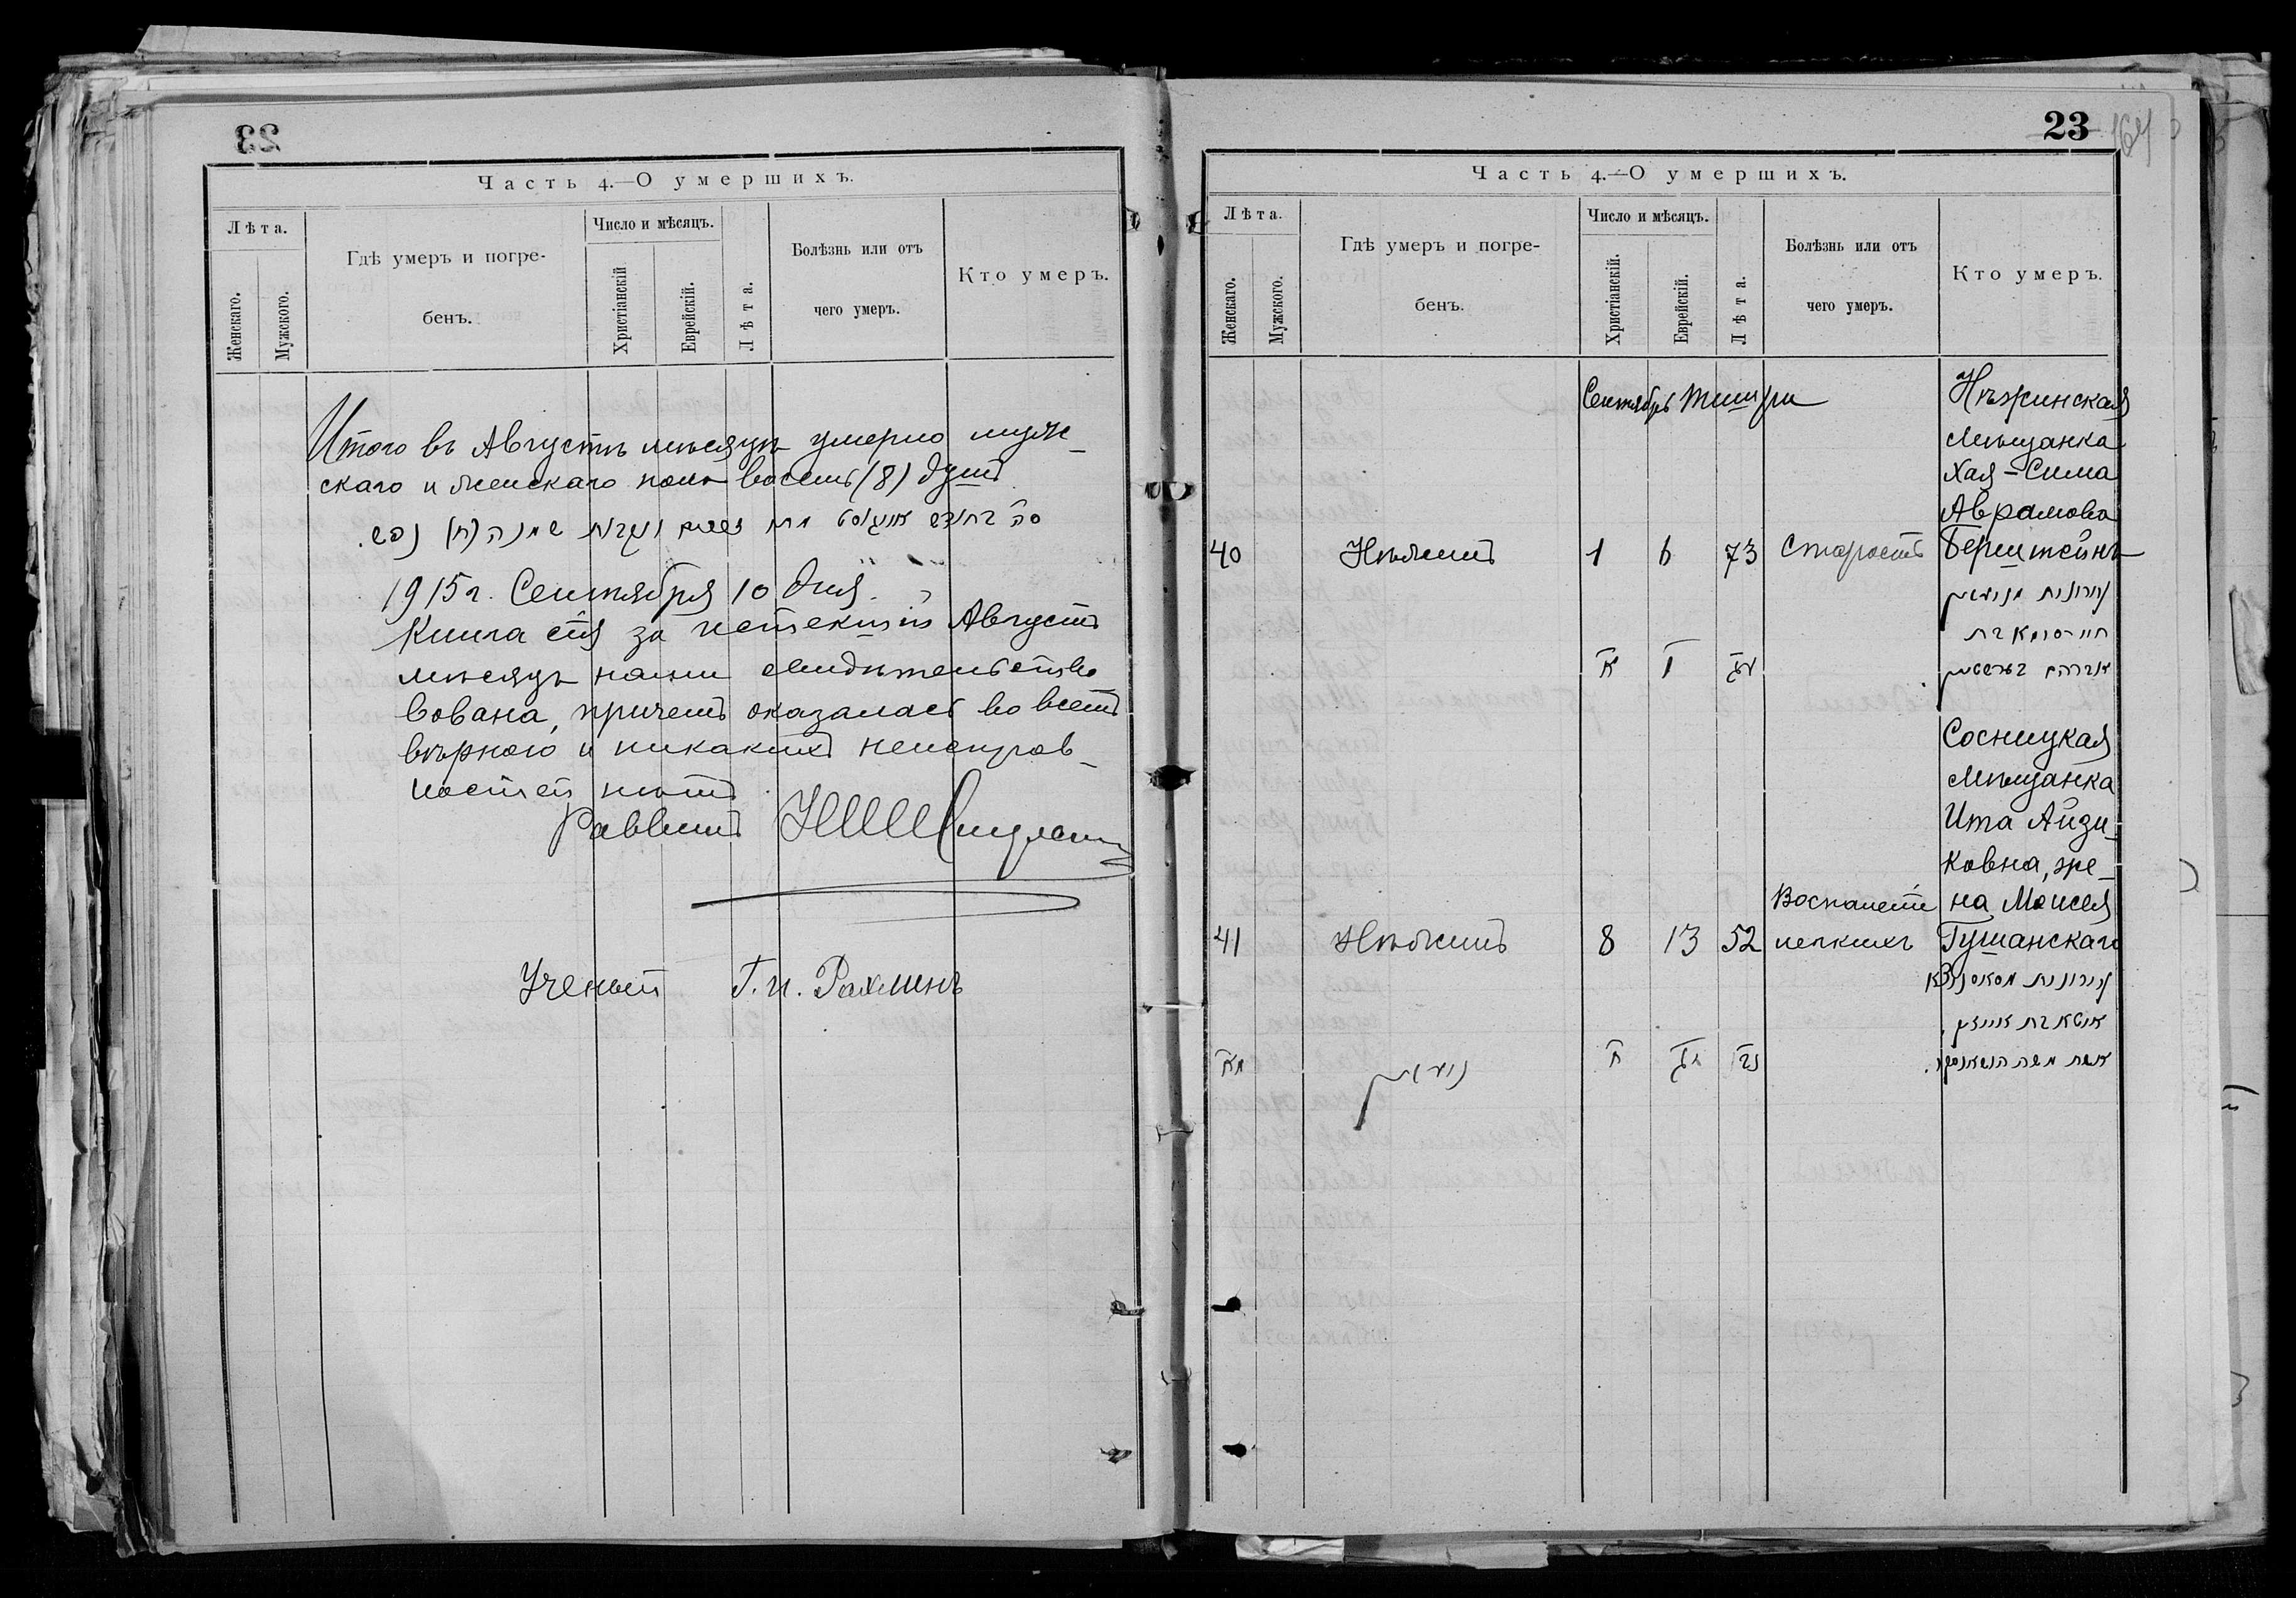 23
Часть 4.—О умершихъ.
Лѣта.
Женскаго.
Мужского.
Гдѣ умеръ и погре-
бенъ.
Число и мѣсяцъ.
Христіанскій
Еврейскій.
Лѣта.
Болѣзнь или отъ
чего умеръ.
Кто умеръ.
Итого въ Августѣ мѣсяцѣ умерло муж-
скаго и женскаго пола восемь (8) душъ
1915 г. Сентября 10 дня.
Книга сія за истекшій Августъ
мѣсяцъ нами свидѣтельство
вована, причемъ оказалась во всемъ
вѣрною и никакихъ неисправ-
ностей нѣтъ
Раввинъ
Ученый Г. И. Рахлинъ
23
164
Часть 4.—О умершихъ.
Лѣта.
Женскаго.
Мужского.
Гдѣ умеръ и погре-
бенъ.
Число и мѣсяцъ.
Христіанскій.
Еврейскій.
Лѣта.
Болѣзнь или отъ
чего умеръ.
Кто умеръ.
Сентябрь Тишри
Нѣжинская
мѣщанка
Хая-Сима
Аврамова
40 Нѣжинъ 1 6 73 Старость Берштейнъ
Сосницкая
мѣщанка
Ита Айзи-
ковна, же-
Воспаленіе на Моисея
41 Нѣжинъ 8 13 52 легкихъ Гушанскаго